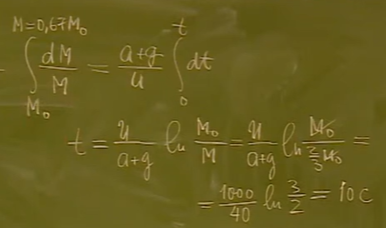 M=0,67M₀
-∫ dM/M = (a+g)/u ∫ dt
M₀ t 0
t = u/(a+g) ln M₀/M = u/(a+g) ln M₀/(2/3 M₀) =
= 1000/40 ln 3/2 = 10 с